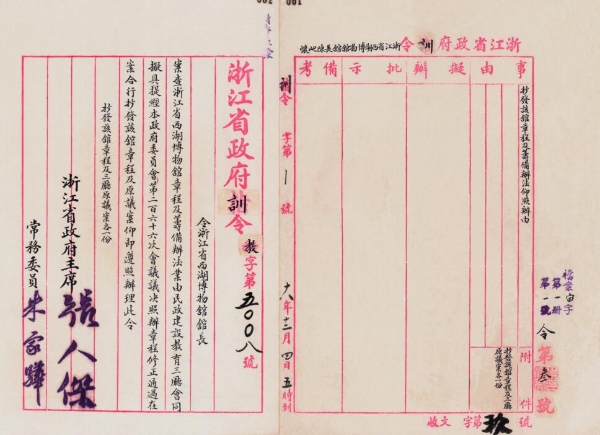 浙江省政府訓令
浙江省西湖博物館館長陳屺懷
事由
擬辦
批示
備考
抄發該館章程及籌備辦法仰照辦由
附件
抄發該館章程及三廳原議案各一份
檔案由字
第一冊
第一號
令
第叁號
收文
字第玖號
訓令
字第一號
十八年十二月四日五時到
浙江省政府訓令
教字第五〇〇八號
令浙江省西湖博物館館長
案查浙江省西湖博物館章程及籌備辦法業由民政建設教育三廳會同
擬具提經本政府委員會第二百六十六次會議議決照辦章程修正通過在
案合行抄發該館章程及原議案仰即遵照辦理此令
抄發該館章程及三廳原議案各一份
浙江省政府主席
張人傑
常務委員
朱家驊